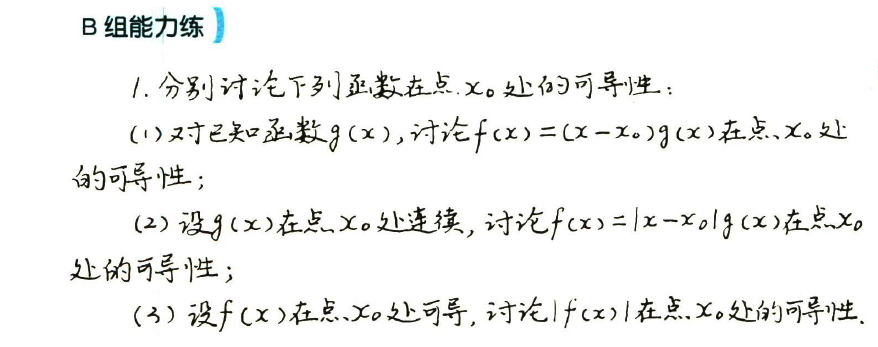 B 组能力练
1. 分别讨论下列函数在点 x₀ 处的可导性:
(1) 对已知函数g(x),讨论f(x)=(x-x₀)g(x)在点x₀处
的可导性;
(2) 设g(x)在点x₀处连续,讨论f(x)=|x-x₀|g(x)在点x₀
处的可导性;
(3) 设f(x)在点x₀处可导,讨论|f(x)|在点x₀处的可导性.